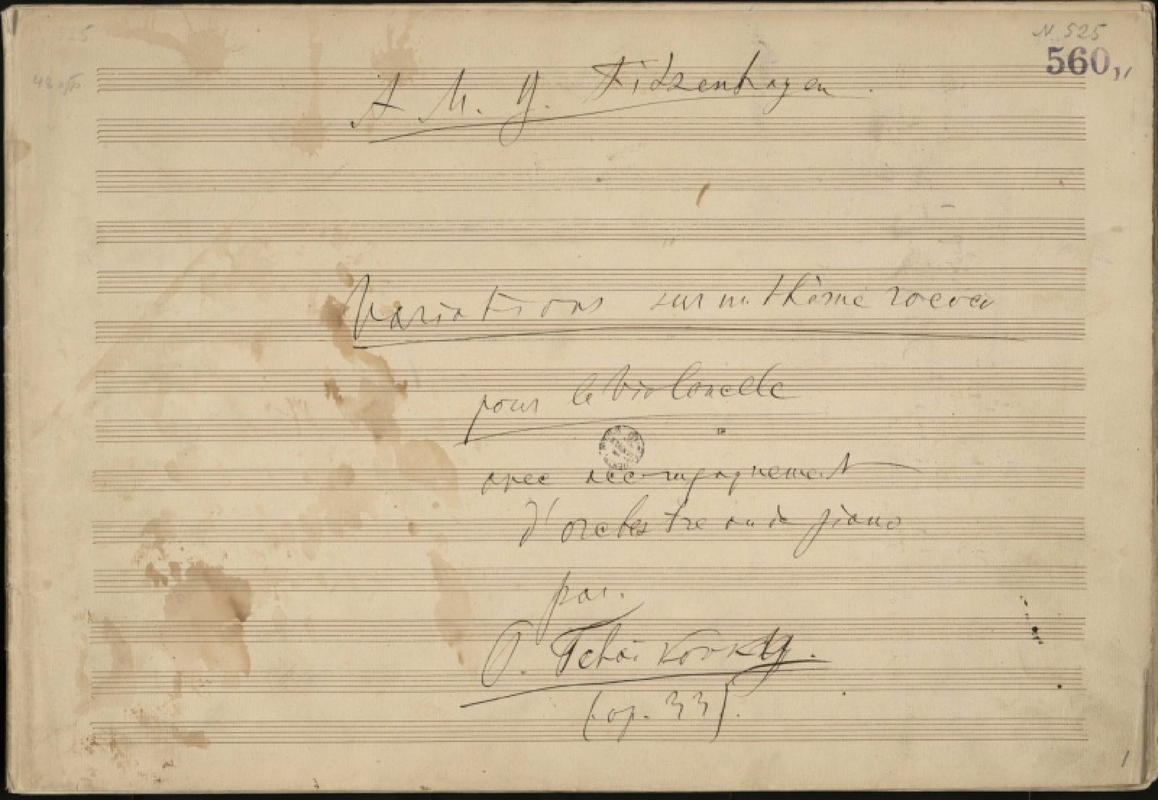 N. 525
560,,
A M. G. Fitzenhagen.
Variations sur un thème rococo
pour le Violoncelle
avec accompagnement
d'orchestre ou de piano
par.
P. Tchaikovsky.
(op. 33).
1